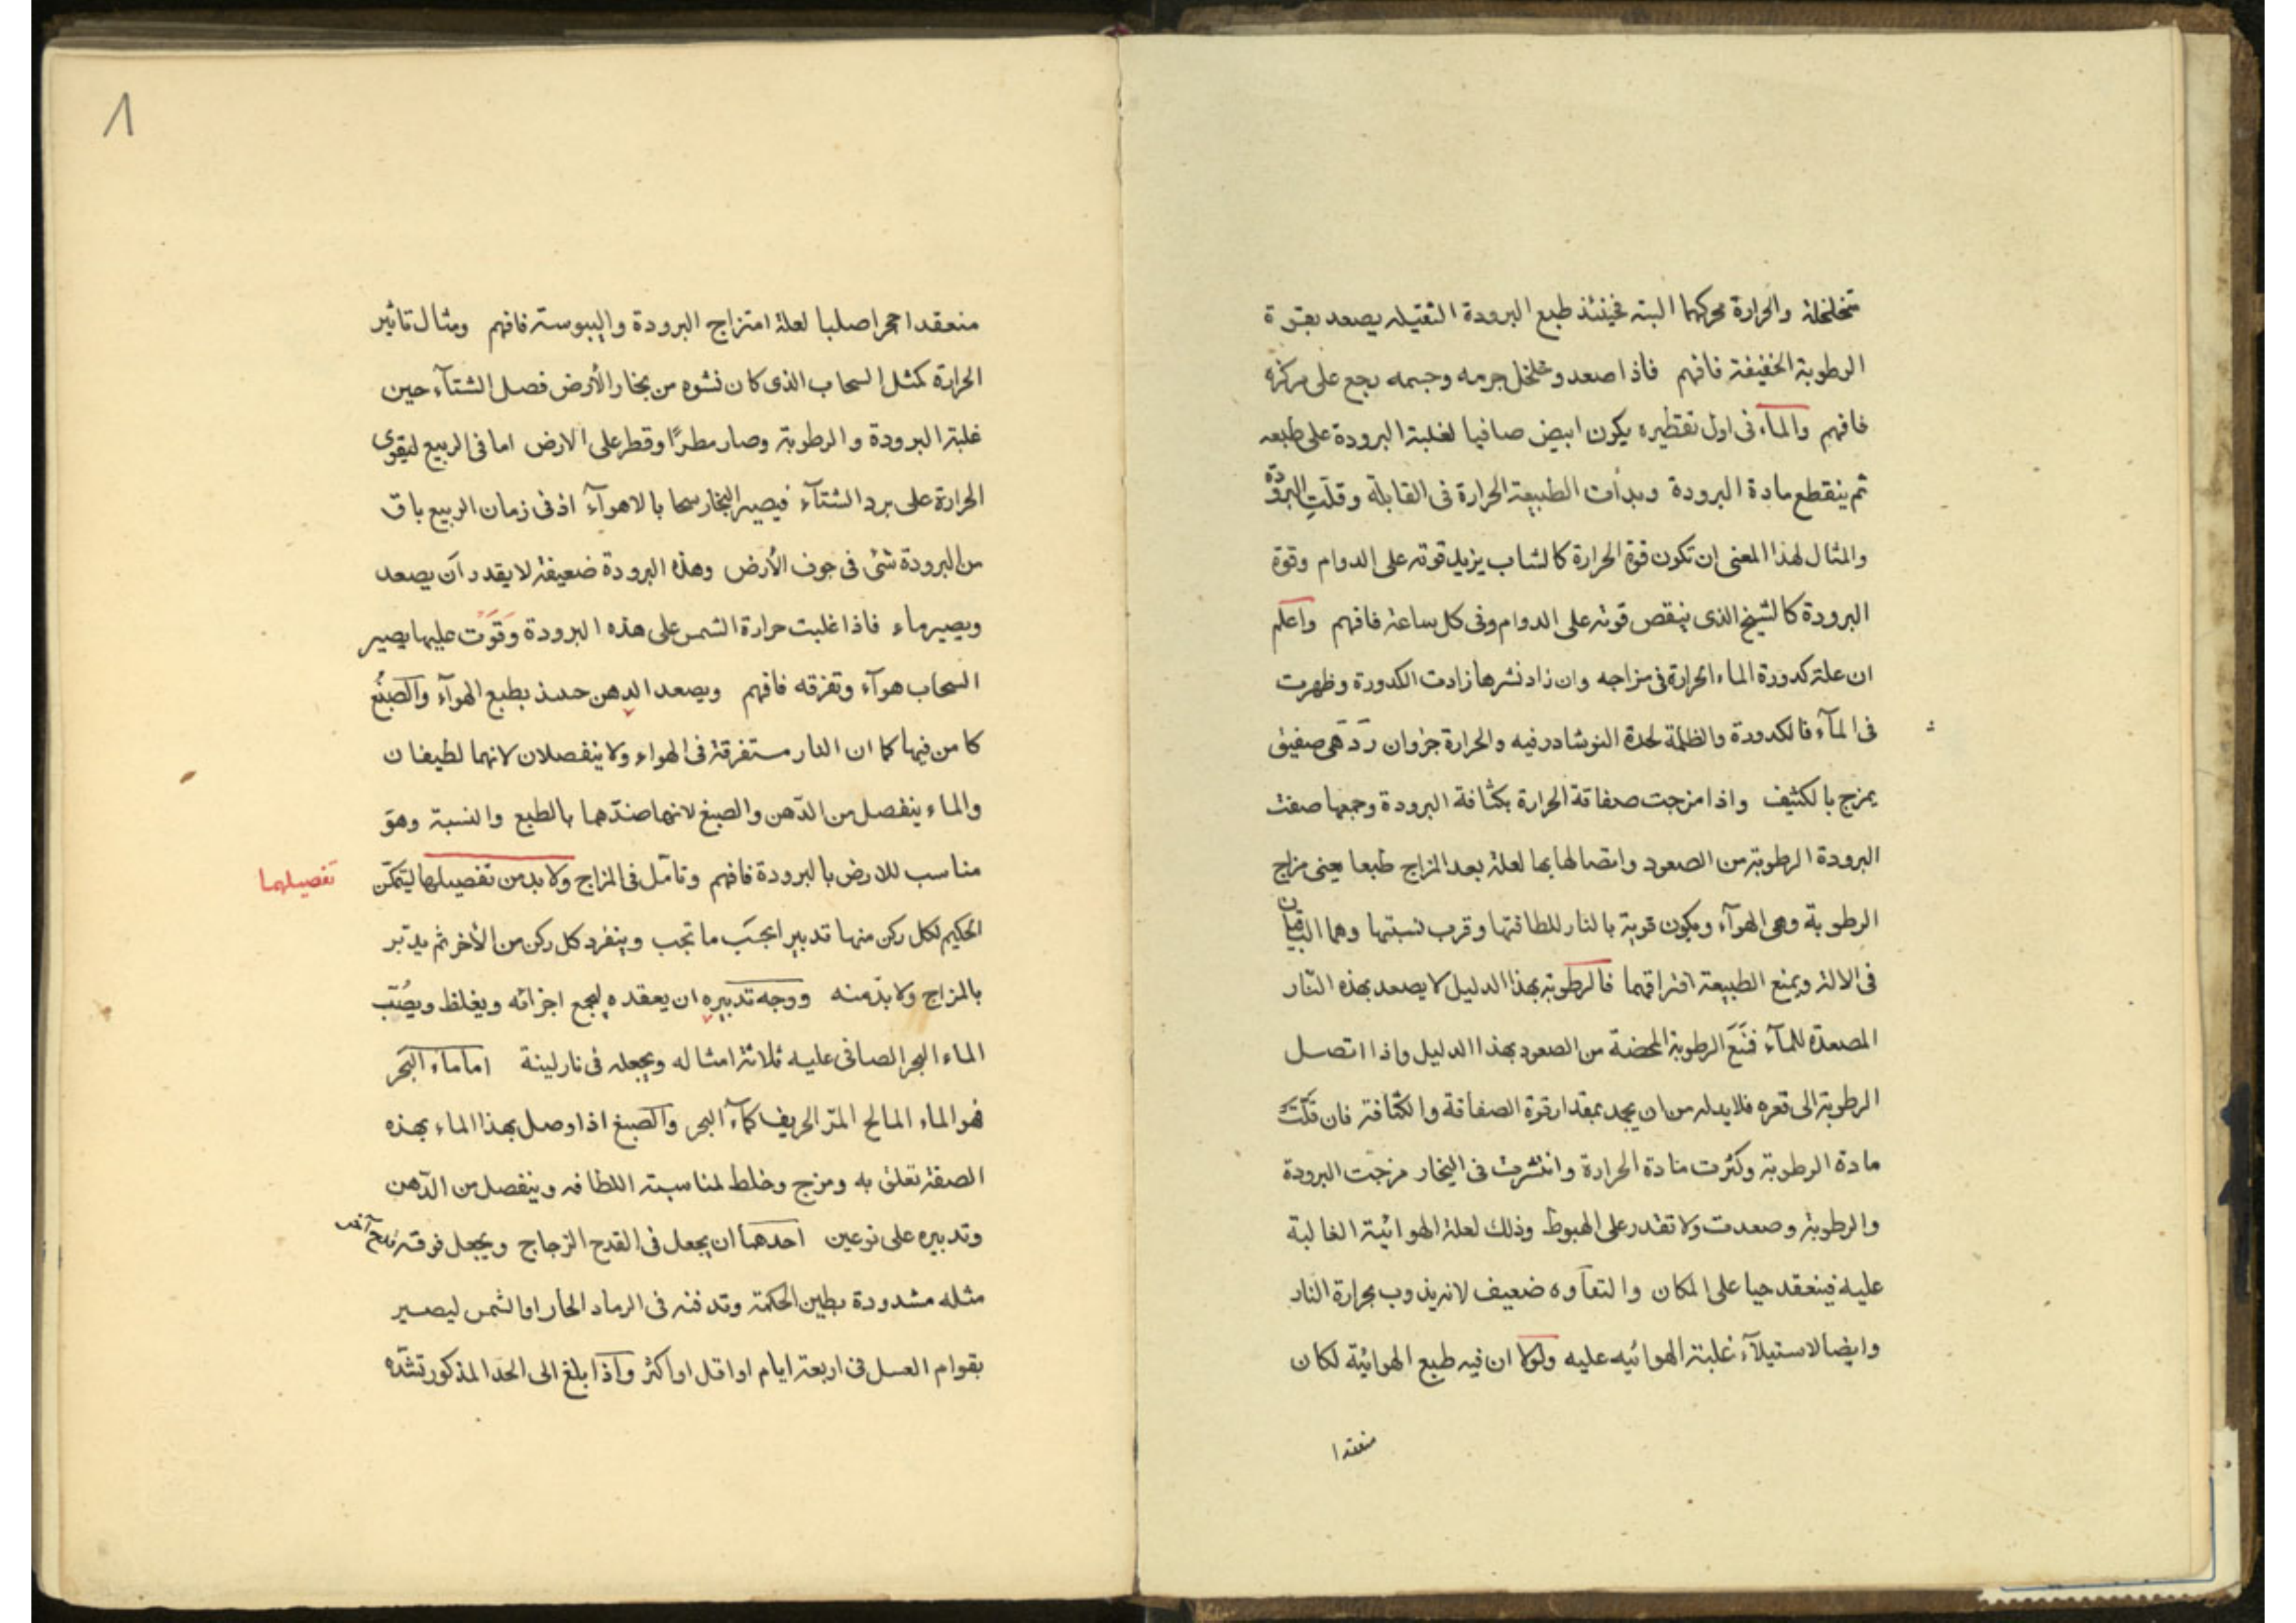 متخلخلة والحرارة محركهما البتة فحينئذ طبع البرودة الثقيله يصعد بقوة
الرطوبة الخفيفة فافهم فاذا صعد وتخلخل جرمه وجسمه رجع على مركزه
فافهم والماء فى اول تقطيره يكون ابيض صافيا لغلبة البرودة على طبعه
ثم ينقطع مادة البرودة وبدأت الطبيعة الحرارة فى القابلة وقلّت البرودة
والمثال لهذا المعنى ان تكون قوة الحرارة كالشاب يزيد قوته على الدوام وقوة
البرودة كالشيخ الذى ينقص قوته على الدوام وفى كل ساعة فافهم واعلم
ان علة كدورة الماء الحرارة فى مزاجه وان زاد نشرها زادت الكدورة وظهرت
فى المآء فالكدورة والظلمة لحدة النوشادر فيه والحرارة جزوان ردّ هى صفيق
يمزج بالكثيف واذا مزجت صفاقة الحرارة بكثافة البرودة وجمعها صفت
البرودة الرطوبة من الصعود واتصالها بها لعلة بعد المزاج طبعا يعنى مزاج
الرطوبة وهى الهوآء ويكون قوية بالنار للطافتها وقرب نسبتها وهما الباقيان
فى الالة ويمنع الطبيعة افتراقهما فالرطوبة بهذا الدليل لا يصعد بهذه النّار
المصعدة للمآء فمنع الرطوبة المحضة من الصعود بهذا الدليل واذا اتصل
الرطوبة الى قعره فلا بد له من ان يجد بمقدار قوة الصفاقة والكثافة فان قلّت
مادة الرطوبة وكثرت مادة الحرارة وانتشرت فى البخار مزجت البرودة
والرطوبة وصعدت ولا تقدر على الهبوط وذلك لعلة الهوائية الغالبة
عليه فينعقد حيا على المكان والتقآوه ضعيف لانه يذوب بحرارة النار
وايضا لاستيلآء غلبة الهوائيه عليه ولولا ان فيه طبع الهوائية لكان
منعقدا
منعقدا حجرا صلبا لعلة امتزاج البرودة واليبوسة فافهم ومثال تاثير
الحرارة كمثل السحاب الذى كان نشوه من بخار الأرض فصل الشتآء حين
غلبة البرودة والرطوبة وصار مطرًا وقطر على الارض اما فى الربيع ليقوى
الحرارة على برد الشتآء فيصير البخار سحابا لا هوآء اذ فى زمان الربيع باق
من البرودة شئ فى جوف الأرض وهذه البرودة ضعيفة لا يقدر أن يصعد
ويصير ماء فاذا غلبت حرارة الشمس على هذه البرودة وقوت عليها يصير
السحاب هوآء وتفرقه فافهم ويصعد الدهن حينئذ بطبع الهوآء والصبغ
كامن فيها كما ان النار مستفرقة فى الهواء ولا ينفصلان لانهما لطيفان
والماء ينفصل من الدّهن والصبغ لانها ضدّهما بالطبع والنسبة وهو
مناسب للارض بالبرودة فافهم وتأمل فى المزاج ولا بد من تفصيلها ليتمكّن
تفصيلهما
الحكيم لكل ركن منها تدبير اعجب ما تجب وينفرد كل ركن من الأخر ثم يدبّر
بالمزاج ولا بدّ منه ووجه تدبيره ان يعقده ليجمع اجزائه ويغلظ ويصُبّ
الماء البحر الصافى عليه ثلاثة امثاله ويجعله فى نار لينة اما ماء البحر
فهو الماء المالح المرّ الحريف كمآء البحر والصبغ اذا وصل بهذا الماء بهذه
الصفة تعلق به ومزج وخلط لمناسبة اللطافه وينفصل من الدّهن
وتدبيره على نوعين احدهما أن يجعل فى القدح الزجاج ويجعل فوقه قدح آخر
مثله مشدودة بطين الحكمة وتدفنه فى الرماد الحار او الشمس ليصير
بقوام العسل فى اربعة ايام او اقل او اكثر واذا بلغ الى الحد المذكور تشدّه